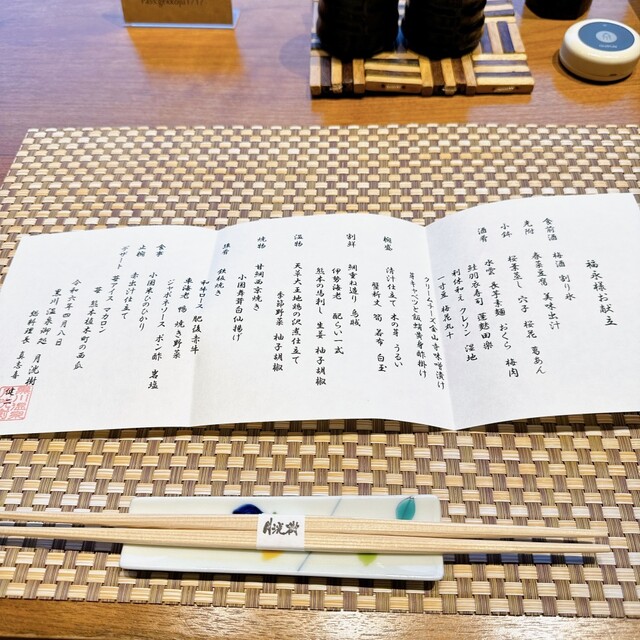 福永様お献立
食前酒　梅酒 割り水
先附　春菜豆腐 美味出汁
桜葉蒸し 穴子 桜花 葛あん
小鉢　水雲 長芋素麺 おくら 梅肉
酒肴　桂剥き寿司 蓮麩田楽
利休和え クレソン 湿地
一寸豆 桜花丸十
クリームチーズ金山寺味噌漬け
芽キャベツと飯蛸黄身酢掛け
椀盛　清汁仕立て 木の芽 うるい
蟹新丈 筍 若布 白玉
割鮮　細重ね造り 烏賊
伊勢海老 配らい一式
熊本の馬刺し 生姜 柚子胡椒
温物　天草大王地鶏の沢煮仕立て
季節野菜 柚子胡椒
焼物　甘鯛西京焼き
強肴　小国舞茸白仙揚げ
鉄板焼き
和牛ロース 肥後赤牛
車海老 鴨 焼き野菜
ジャポネソース ポン酢 岩塩
食事　小国米ひのひかり
止椀　赤出汁仕立て
デザート　苺アイス マカロン
苺 熊本植木町の西瓜
令和六年四月八日
黒川温泉御処 月洸樹
総料理長
月洸樹